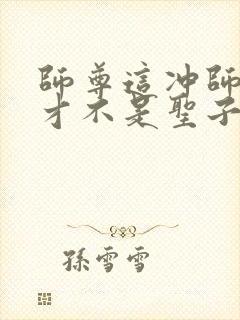 師尊這冲師
才不是聖子
孫雪雪